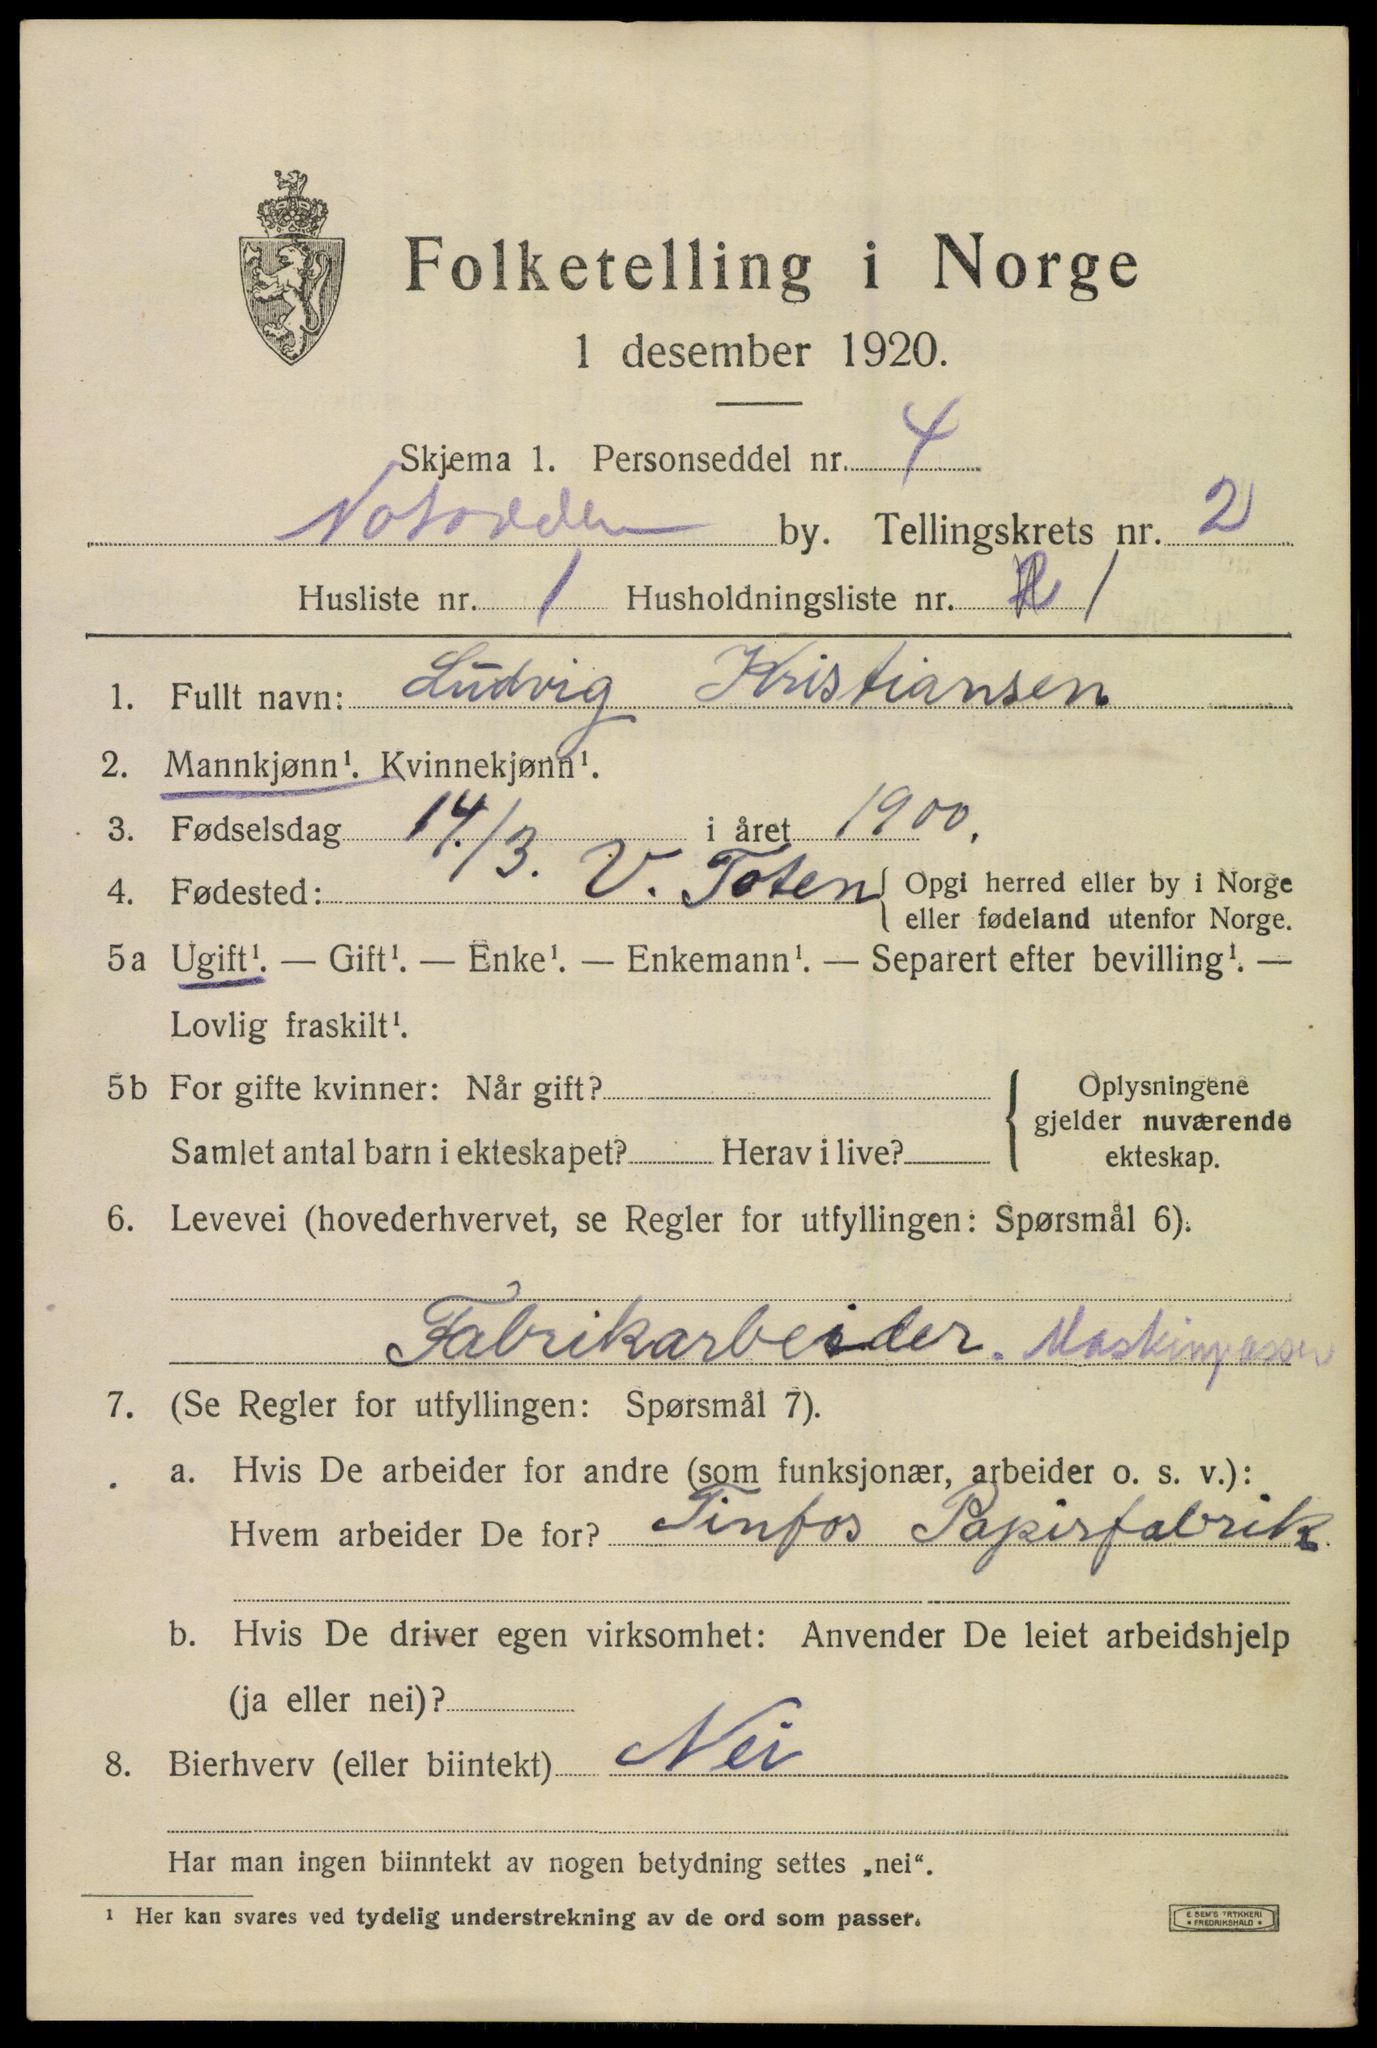 Folketelling i Norge
1 desember 1920.
Skjema 1. Personseddel nr. 4
Notodden by. Tellingskrets nr. 2
Husliste nr. 1 Husholdningsliste nr. 1
1. Fullt navn: Ludvig Kristiansen
2. Mannkjønn¹. Kvinnekjønn¹.
3. Fødselsdag 14./3. i året 1900.
4. Fødested: V. Toten { Opgi herred eller by i Norge
eller fødeland utenfor Norge.
5a Ugift¹. — Gift¹. — Enke¹. — Enkemann¹. — Separert efter bevilling¹. —
Lovlig fraskilt¹.
5b For gifte kvinner: Når gift? { Oplysningene
gjelder nuværende
Samlet antal barn i ekteskapet? Herav i live? ekteskap.
6. Levevei (hovederhvervet, se Regler for utfyllingen: Spørsmål 6).
Fabrikarbeider. Maskinpasser
7. (Se Regler for utfyllingen: Spørsmål 7).
a. Hvis De arbeider for andre (som funksjonær, arbeider o. s. v.):
Hvem arbeider De for? Tinfos Papirfabrik.
b. Hvis De driver egen virksomhet: Anvender De leiet arbeidshjelp
(ja eller nei)?
8. Bierhverv (eller biintekt) Nei
Har man ingen biinntekt av nogen betydning settes „nei“.
¹ Her kan svares ved tydelig understrekning av de ord som passer.
E. SEM'S TRYKKERI
* FREDRIKSHALD *